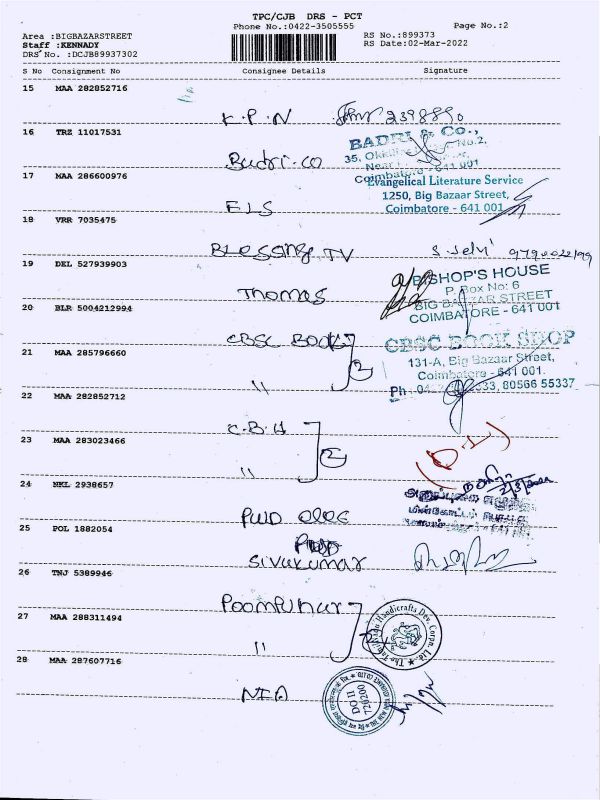 TPC/CJB DRS - PCT
Phone No.:0422-3505555
Page No.:2
Area :BIGBAZARSTREET
RS No.:899373
Staff :KENNADY
RS Date:02-Mar-2022
DRS No. :DCJB89937302
S No Consignment No Consignee Details Signature
15 MAA 282852716
K.P.N 2398890
16 TRZ 11017531
BADRI & Co.,
35, No.2,
Badri.co
Coimbatore - 641 001
17 MAA 286600976
Evangelical Literature Service
1250, Big Bazaar Street,
ELS
Coimbatore - 641 001
18 VRR 7035475
Blessing TV S. Selvi
19 DEL 527939903
BISHOP'S HOUSE
P. Box No: 6
Thomas
BIG BAZAAR STREET
COIMBATORE - 641 001
20 BLR 5004212994
CBSC Books
CBSC BOOK SHOP
21 MAA 285796660
131-A, Big Bazaar Street,
Coimbatore - 641 001.
" 2
Ph 80566 55337
22 MAA 282852712
C.B.H
23 MAA 283023466
" 2
24 NKL 2938657
மின்கோட்டம்
PWD
25 POL 1882054
Sivakumar
26 TNJ 5389946
Poompuhar
27 MAA 288311494
" 2
The Tamilnadu Handicrafts Dev. Corpn. Ltd.
28 MAA 287607716
NIA
DO II
720200